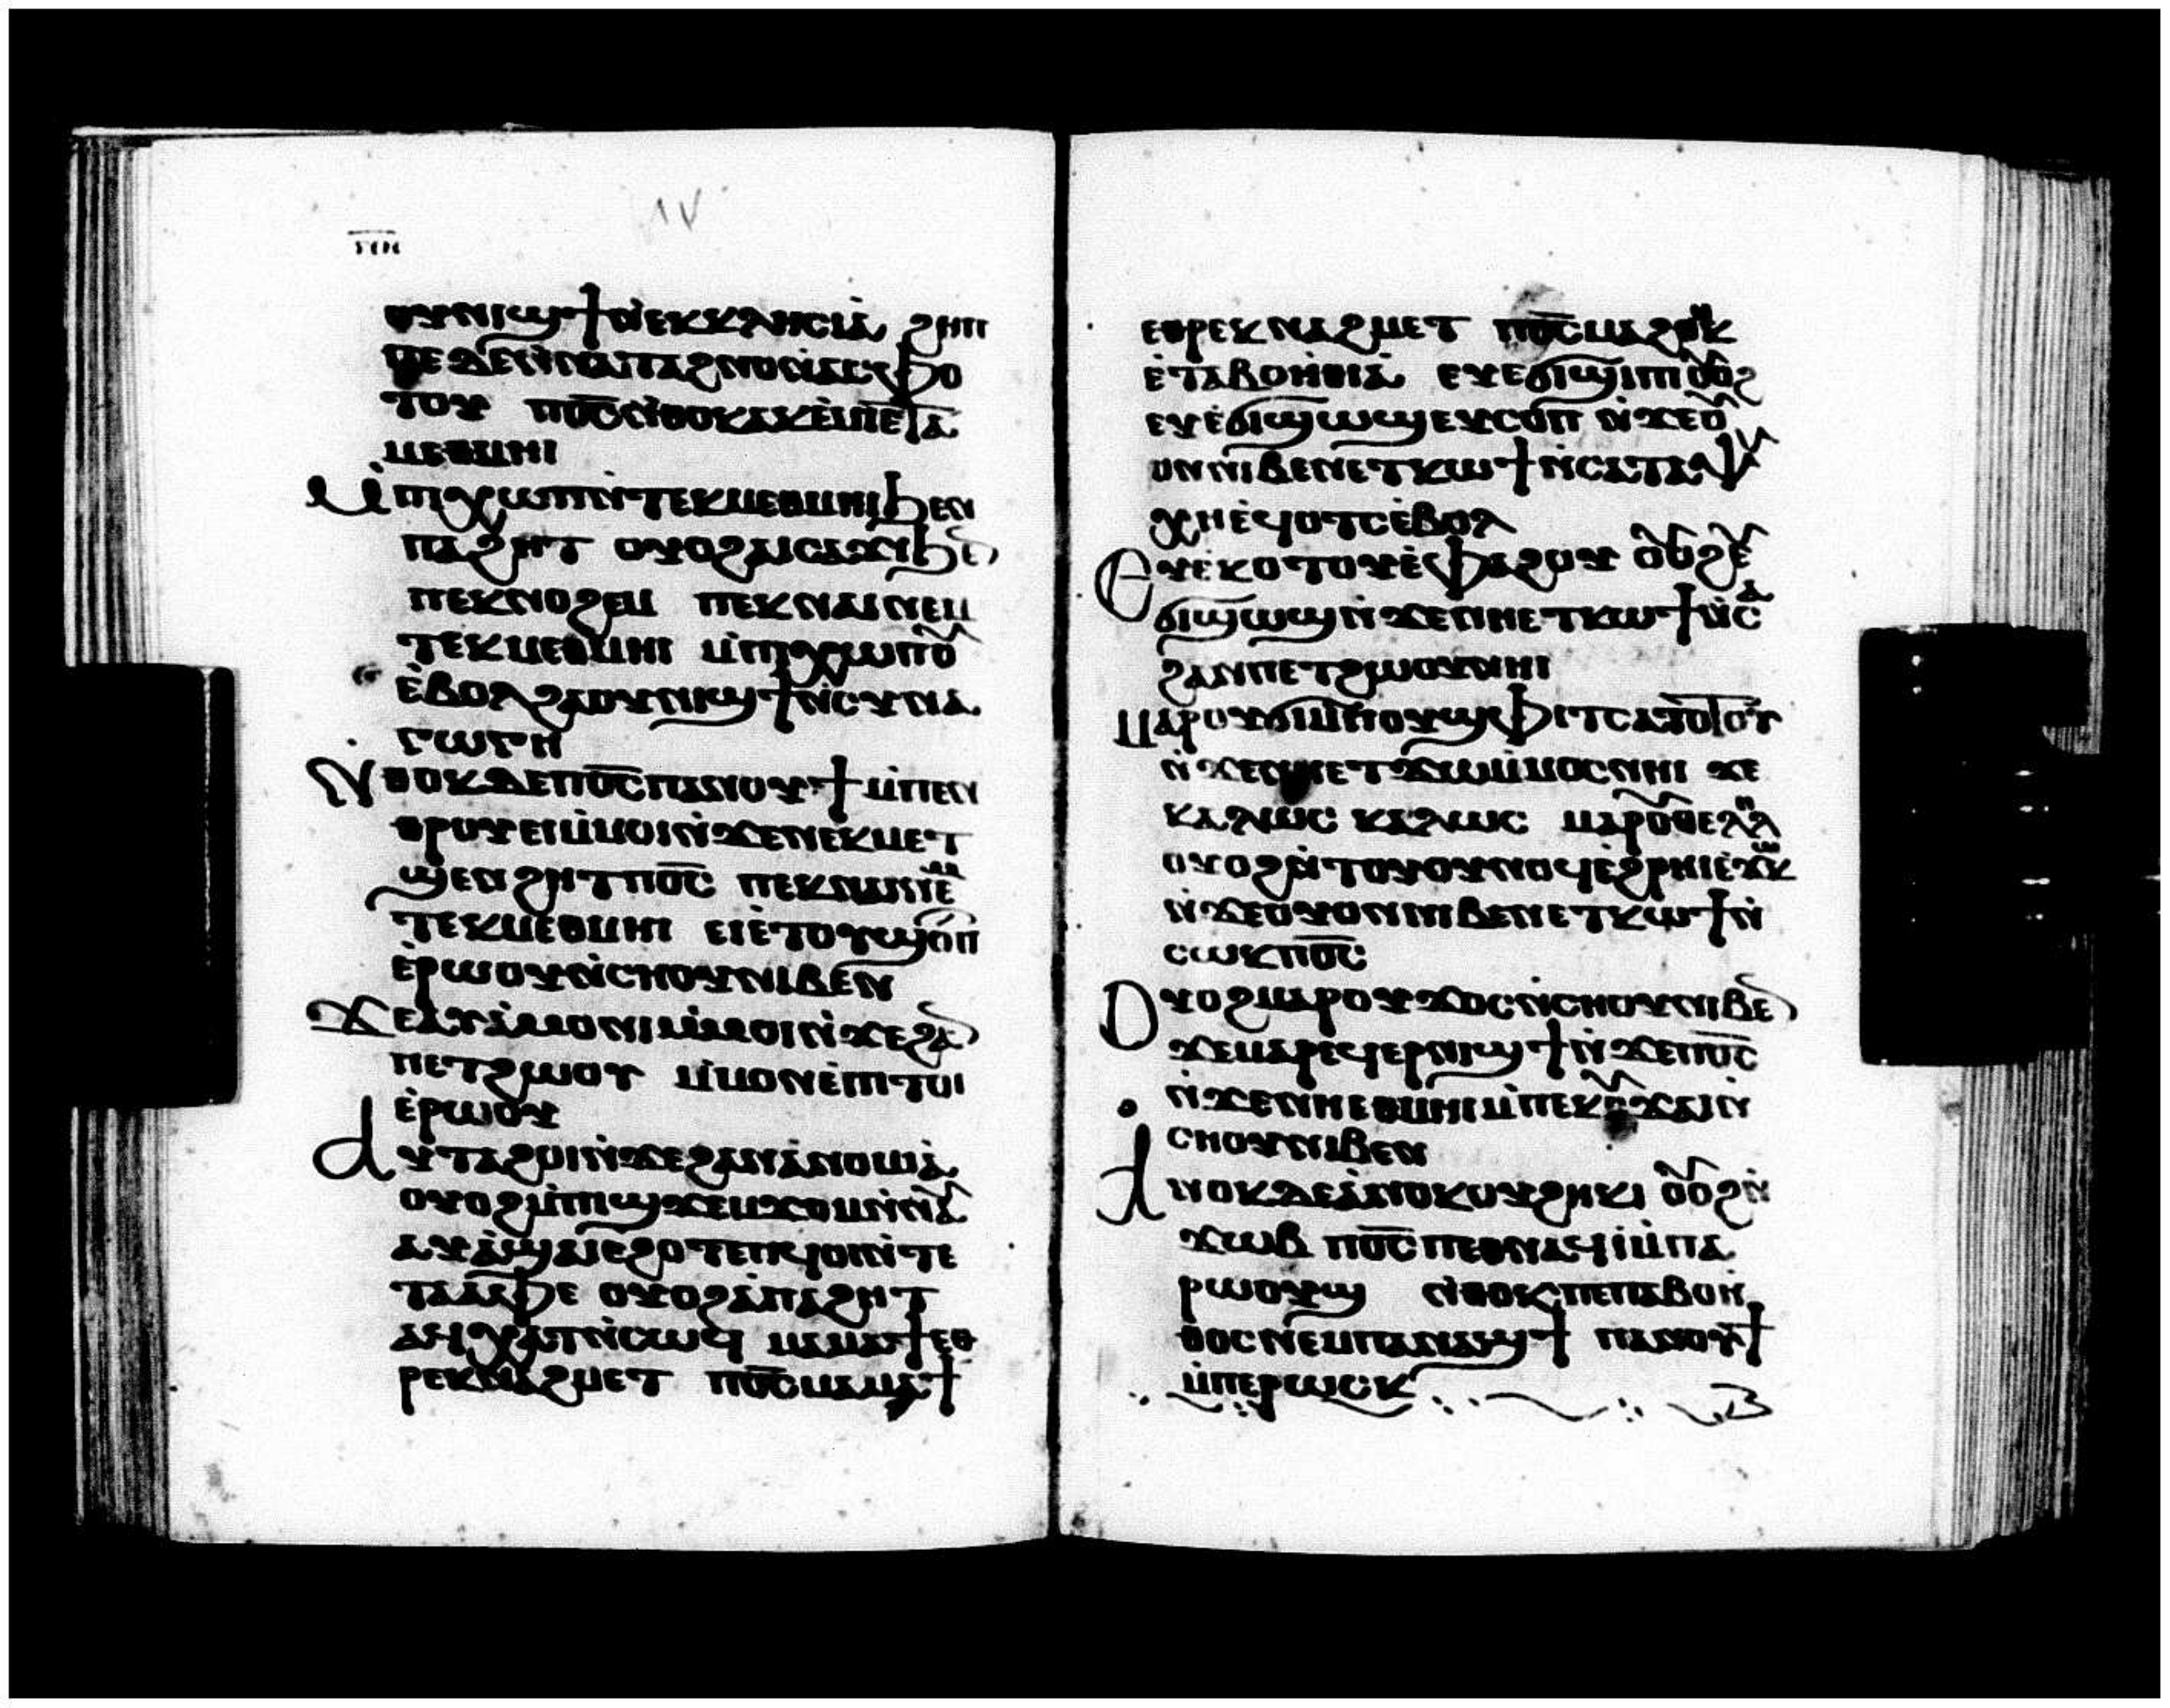 ⲟⲩⲛⲓϣϯⲛ̀ⲉⲕⲕⲗⲏⲥⲓⲁ̀ ϩⲏⲡ
ⲡⲉ ϫⲉⲛⲛⲁⲥⲫⲟⲧⲟⲩ
ⲡⲟ̅ⲥ̅ⲛ̀ⲑⲟⲕⲁⲕⲉ̀ⲙⲉ̀ⲧⲁ
ⲙⲉⲑⲙⲏⲓ
Ⲙ̀ⲡⲓⲭⲱⲡⲛ̀ⲧⲉⲕⲙⲉⲑⲙⲏⲓϧⲉⲛ
ⲡⲁϩⲏⲧ ⲟⲩⲟϩⲁⲓⲥⲁϫⲓϧⲉⲛ
ⲡⲉⲕⲛⲟϩⲉⲙ ⲡⲉⲕⲛⲁⲓⲛⲉⲙ
ⲧⲉⲕⲙⲉⲑⲙⲏⲓ ⲙ̀ⲡⲓⲭⲱⲡⲟⲩ
ⲉ̀ⲃⲟⲗϩⲁⲟⲩⲛⲓϣϯⲛ̀ⲥⲩⲛⲁ
ⲅⲱⲅⲏ
Ⲛⲑⲟⲕⲇⲉⲡⲟ̅ⲥ̅ⲡⲁⲛⲟⲩϯⲙ̀ⲡⲉⲛ
ⲑⲣⲟⲩⲉⲓⲙ̀ⲙⲟⲓⲛ̀ϫⲉⲛⲉⲕⲙⲉⲧ
ϣⲉⲛϩⲏⲧⲡⲟ̅ⲥ̅ ⲡⲉⲕⲛⲁⲓⲛⲉⲙ
ⲧⲉⲕⲙⲉⲑⲙⲏⲓ ⲉⲓⲉ̀ⲧⲟⲩϣⲟⲡ
ⲉ̀ⲣⲱⲟⲩⲛ̀ⲥⲏⲟⲩⲛⲓⲃⲉⲛ
Ϫⲉⲁⲩⲁ̀ⲙⲟⲛⲓⲙ̀ⲙⲟⲓⲛ̀ϫⲉϩⲁⲛ
ⲡⲉⲧϩⲱⲟⲩ ⲙ̀ⲙⲟⲛⲉ̀ⲡⲓⲧⲟⲓ
ⲉ̀ⲣⲱⲟⲩ
Ⲁⲩⲧⲁϩⲟⲓⲛ̀ϫⲉϩⲁⲛⲁ̀ⲛⲟⲙⲓⲁ̀
ⲟⲩⲟϩⲙ̀ⲡⲓϣϫⲉⲙϫⲟⲙⲛ̀ⲛⲁⲩ
ⲁⲩⲁ̀ϣⲁⲓⲉϩⲟⲧⲉⲡⲓϥⲱⲓⲛ̀ⲧⲉ
ⲧⲁⲁ̀ⲫⲉ ⲟⲩⲟϩⲁ̀ⲡⲁϩⲏⲧ
ⲁϥⲭⲁⲧⲛ̀ⲥⲱϥ ⲙⲁⲙⲁϯⲉⲑ
ⲣⲉⲕⲛⲁϩⲙⲉⲧ ⲡⲟ̅ⲥ̅ⲙⲁⲙⲁϯ
ⲉⲑⲣⲉⲕⲛⲁϩⲙⲉⲧ ⲡⲟ̅ⲥ̅ⲙⲁϩⲑⲏⲕ
ⲉ̀ⲧⲁⲃⲟⲏ̀ⲑⲓⲁ̀ ⲉⲩⲉϭⲓϣⲓⲡⲓ ⲟⲩⲟϩ
ⲉⲩⲉ̀ϭⲓϣϣⲱϣⲉⲩⲥⲟⲡ ⲛ̀ϫⲉⲟⲩ
ⲟⲛⲛⲓⲃⲉⲛⲉⲧⲕⲱϯⲛ̀ⲥⲁⲧⲁⲯⲩ
ⲭⲏⲉ̀ϥⲟⲧⲥⲉ̀ⲃⲟⲗ
Ⲉⲩⲉ̀ⲕⲟⲧⲟⲩⲉ̀ⲫⲁϩⲟⲩ ⲟⲩⲟϩⲉⲩ
ϭⲓϣϣⲱϣⲛ̀ϫⲉⲛⲏⲉⲧⲕⲱϯⲛ̀ⲥⲁ
ϩⲁⲛⲡⲉⲧϩⲱⲟⲩⲛⲏⲓ
Ⲙⲁⲣⲟⲩϭⲓⲙ̀ⲡⲟⲩϣⲫⲓⲧⲥⲁⲧⲟⲧⲟⲩ
ⲛ̀ϫⲉⲛⲏⲉⲧϫⲱⲙ̀ⲙⲟⲥⲛⲏⲓ ϫⲉ
ⲕⲁⲗⲱⲥ ⲕⲁⲗⲱⲥ ⲙⲁⲣⲟⲩⲑⲉⲗⲏⲗ
ⲟⲩⲟϩⲛ̀ⲧⲟⲩⲟⲩⲛⲟϥⲉ̀ϩⲣⲏⲓⲉ̀ϫⲱⲕ
ⲛ̀ϫⲉⲟⲩⲟⲛⲛⲓⲃⲉⲛⲉⲧⲕⲱϯⲛ̀
ⲥⲱⲕⲡⲟ̅ⲥ̅
Ⲟⲩⲟϩⲙⲁⲣⲟⲩϫⲟⲥⲛ̀ⲥⲏⲟⲩⲛⲓⲃⲉⲛ
ϫⲉⲙⲁⲣⲉϥⲉⲣⲛⲓϣϯⲛ̀ϫⲉⲡⲟ̅ⲥ̅
ⲛ̀ϫⲉⲛⲏⲉⲑⲙⲏⲓⲙ̀ⲡⲉⲕⲟⲩϫⲁⲓⲛ̀
ⲥⲏⲟⲩⲛⲓⲃⲉⲛ
Ⲁⲛⲟⲕⲇⲉⲁ̀ⲛⲟⲕⲟⲩϩⲏⲕⲓ ⲟⲩⲟϩⲛ̀
ϫⲱⲃ ⲡⲟ̅ⲥ̅ⲡⲉⲑⲛⲁϥⲓⲙ̀ⲡⲁ
ⲣⲱⲟⲩϣ ⲛ̀ⲑⲟⲕⲡⲉⲡⲁⲃⲟⲏ̀
ⲑⲟⲥⲛⲉⲙⲡⲁⲛⲁϣϯ ⲡⲁⲛⲟⲩϯ
ⲙ̀ⲡⲉⲣⲱⲥⲕ